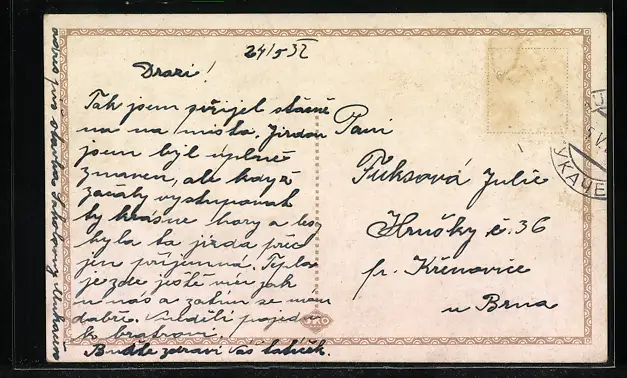 24/5 32
Drazí!
Tak jsem přijel stastně
na na místo. Jízdou
jsem byl úplně
zmaven, ale když
začaly vystupovat
ty krásne hory a lesy
byla ta jizda přec
jen příjemná. Teplo
je zde ještě víc jak
u nás a zatím se mám
dobře. V neděli pojedu
k bratrovi.
Buďte zdraví Váš tatíček.
Paní
Fuksová Julie
Hrušky č. 36
p. Křenovice
u Brna
УКАЧЕ